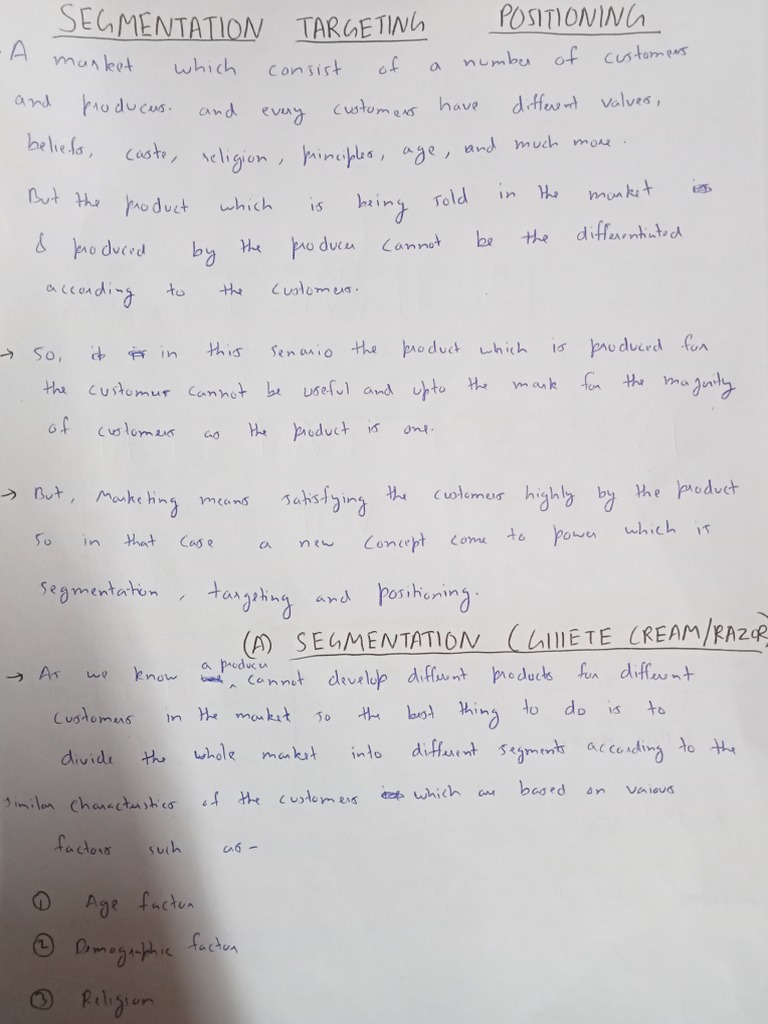 SEGMENTATION TARGETING POSITIONING
A market which consist of a number of customers
and producers. and every customers have different values,
beliefs, caste, religion, principles, age, and much more.
But the product which is being sold in the market
& produced by the producer cannot be the differentiated
according to the customers.
→ So, in this senario the product which is produced for
the customer cannot be useful and upto the mark for the majority
of customers as the product is one.
→ But, Marketing means satisfying the customers highly by the product
so in that case a new concept come to power which is
segmentation, targeting and positioning.
(A) SEGMENTATION (GIllETE CREAM/RAZOR)
→ As we know a producer cannot develop different products for different
customers in the market so the best thing to do is to
divide the whole market into different segments according to the
similar characteristics of the customers which are based on vaious
factors such as-
① Age factor
② Demographic factor
③ Religion